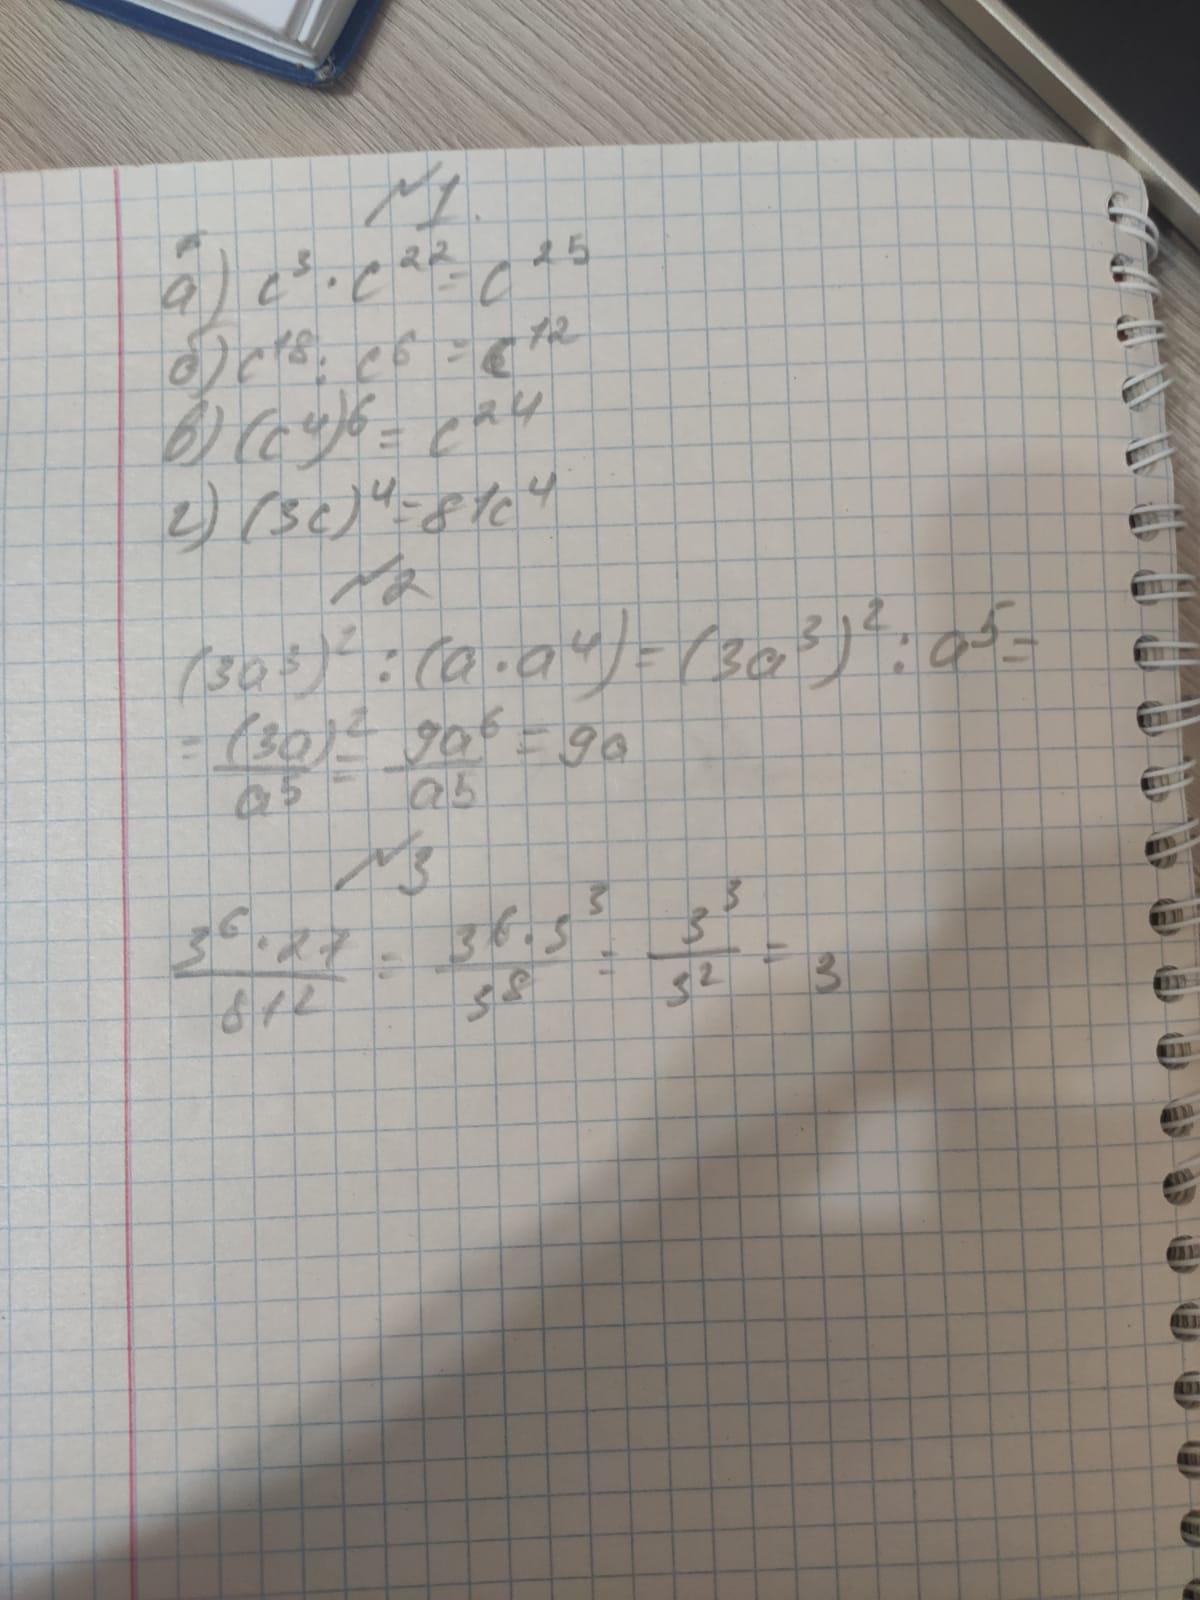 №1.
а) c³ · c²² = c²⁵
б) c¹⁸ : c⁶ = c¹²
в) (c⁴)⁶ = c²⁴
г) (3c)⁴ = 81c⁴
№2
(3a³)² : (a · a⁴) = (3a³)² : a⁵ =
= (3a)²/a⁵ = 9a⁶/a⁵ = 9a
№3
3⁶ · 27/81² = 3⁶ · 3³/3⁸ = 3³/3² = 3